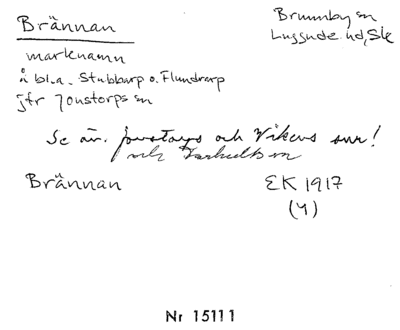 Brännan
Brunnby sn
Luggude hd, Sk
marknamn
å bl.a. Stubbarp o. Flundrarp
jfr Jonstorps sn
Se äv. Jonstorps och Vikens snr!
och Farhults sn
Brännan
EK 1917
(4)
Nr 15111